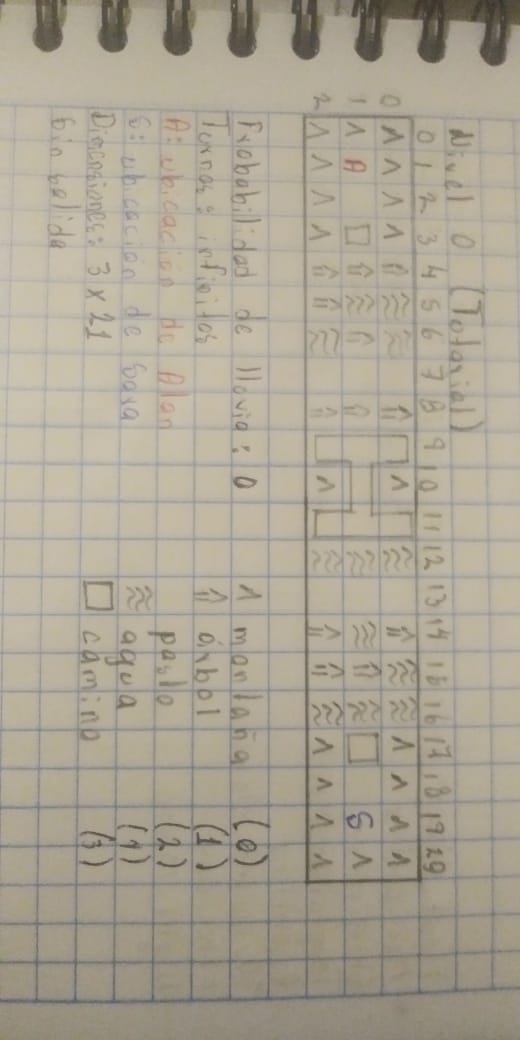 Nivel 0 (Tutorial)
0 1 2 3 4 5 6 7 8 9 10 11 12 13 14 15 16 17 18 19 20
0
1 A S
2
Probabilidad de lluvia: 0
Turnos: infinitos
A: ubicación de Alan
S: ubicación de Sara
Dimensiones: 3 x 21
Sin salida
montaña (0)
árbol (1)
pasto (2)
agua (4)
camino (3)